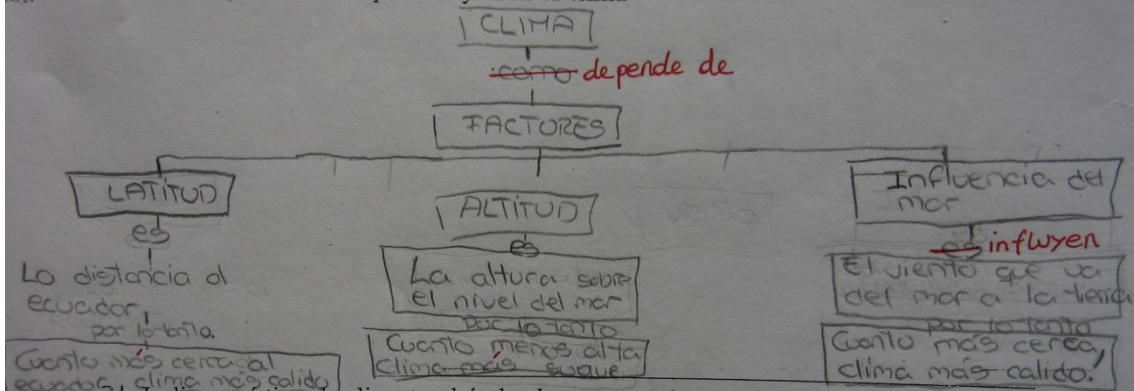 CLIMA
como depende de
FACTORES
LATITUD
es
La distancia al
ecuador,
por lo tanto.
Cuanto más cerca al
ecuador, clima más calido
ALTITUD
es
La altura sobre
el nivel del mar
por lo tanto
Cuanto menos alta
clima más suave
Influencia del
mar
es influyen
El viento que va
del mar a la tierra
por lo tanto
Cuanto más cerca,
clima más calido.